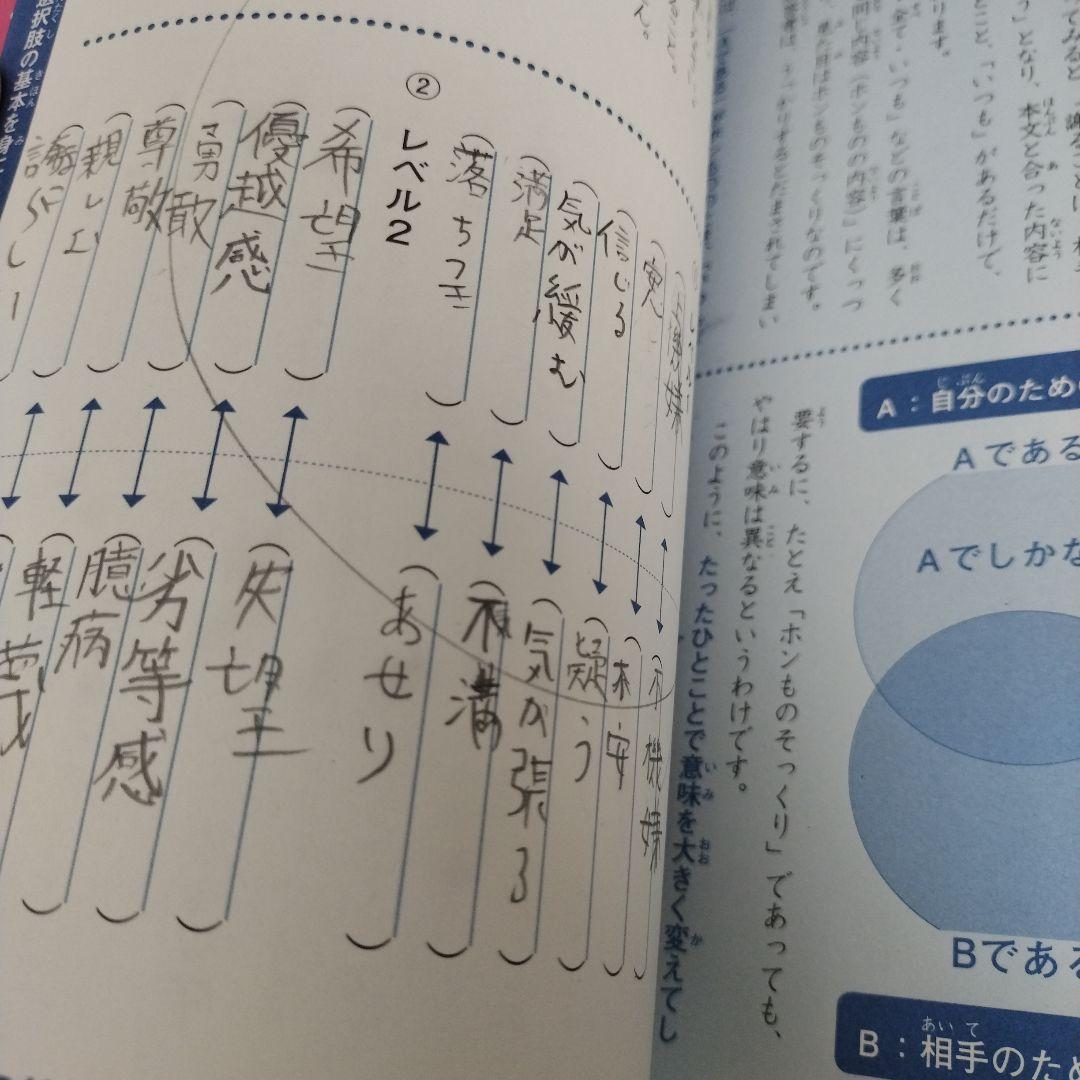 てみると
う」となり、本文と合った内容に
こと、「いつも」があるだけで、
ります。
全て・いつも」などの言葉は、多く
同じ内容(ホンものの内容)にくっつ
見た目はホンものそっくりなのです。
うっかりするとだまされてしまい
要するに、たとえ「ホンものそっくり」であっても、
やはり意味は異なるというわけです。
このように、たったひとことで意味を大きく変えてし
A:自分のため
Aである
Aでしかな
Bである
B:相手のため
不機嫌
不安
信じる
疑う
気が緩む
気が張る
満足
不満
落ちつき
あせり
② レベル2
希望
失望
優越感
劣等感
勇敢
臆病
尊敬
軽蔑
親しい
誇らしい
選択肢の基本を身に